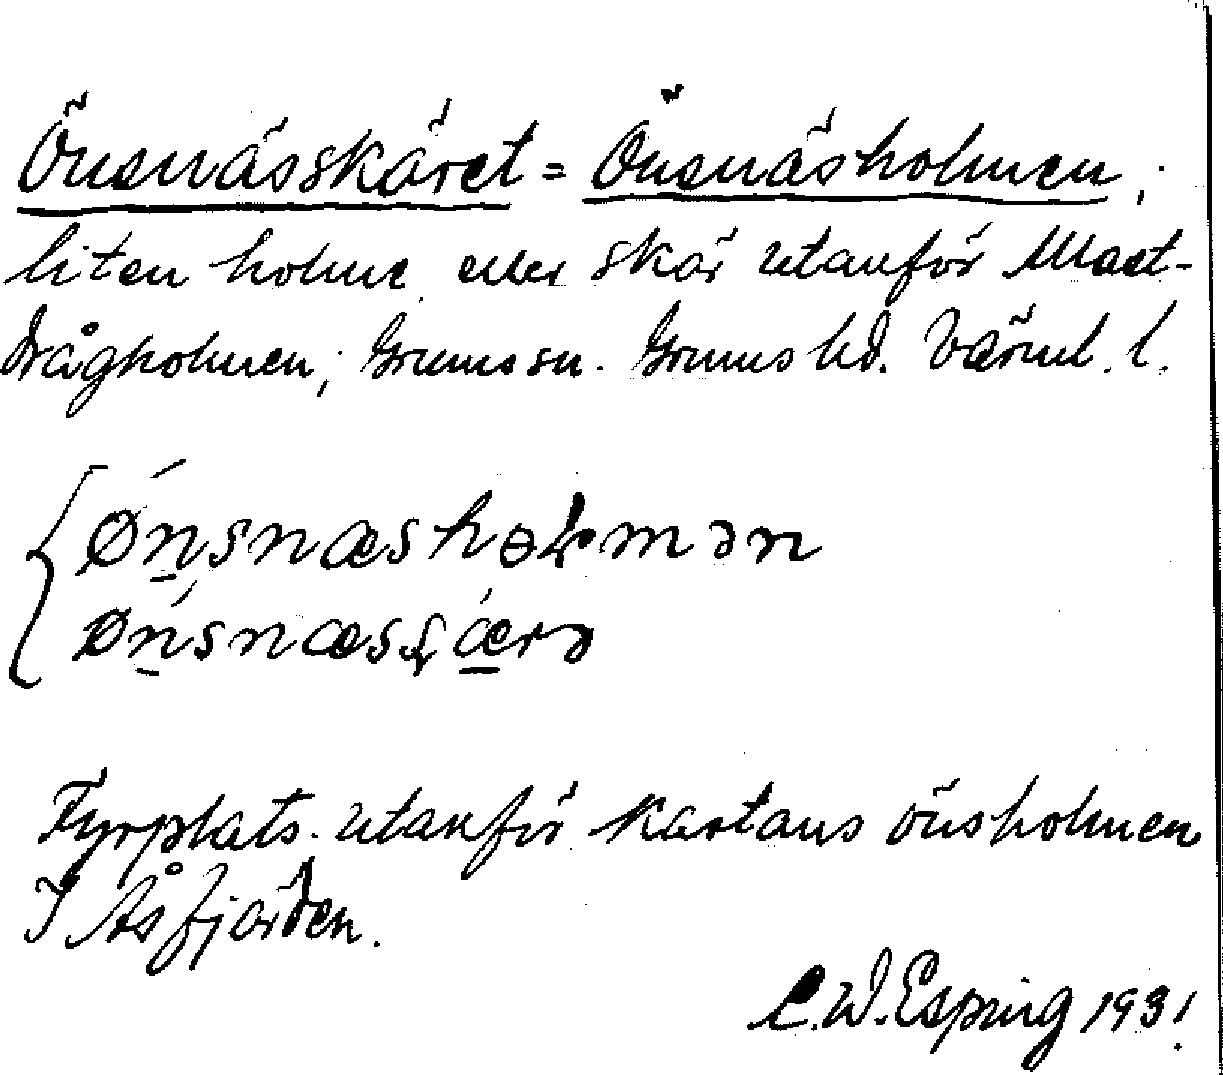 Önsnässkäret = Önsnäsholmen;
liten holme eller skär utanför Mast-
drågholmen; Grums sn. Grums hd. Värml. l.
ǿn̠snæshɵɫmən
ǿn̠snæsʂǽ̠rə
Fyrplats utanför kartans Önsholmen
I Åsfjorden.
C.W. Esping 1931.